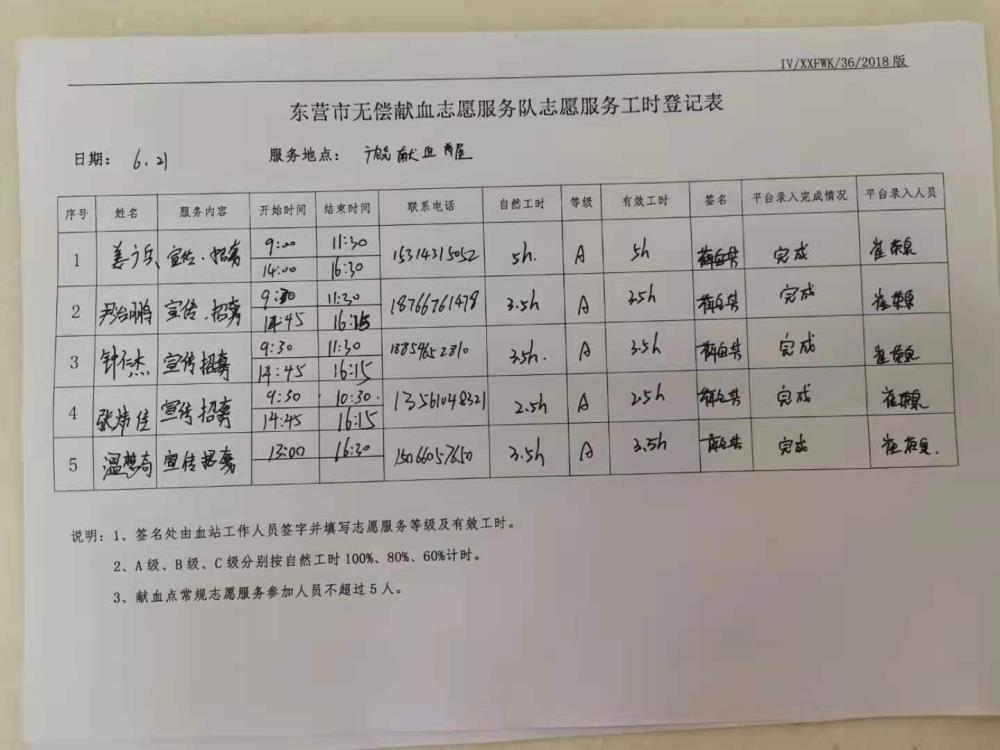 IV/XXFWK/36/2018版
东营市无偿献血志愿服务队志愿服务工时登记表
日期: 6.21 服务地点: 献血屋
序号 姓名 服务内容 开始时间 结束时间 联系电话 自然工时 等级 有效工时 签名 平台录入完成情况 平台录入人员
1 宣传.招募 9:00 11:30 15314315052 5h. A 5h 完成
14:00 16:30
2 宣传.招募 9:30 11:30 18766761478 3.5h A 3.5h 完成
14:45 16:15
3 钟仁杰 宣传招募 9:30 11:30 3.5h. A 3.5h 完成
14:45 16:15
4 张炜佳 宣传招募 9:30 10:30. 13561048321 2.5h A 2.5h 完成
14:45 16:15
5 温梦奇 宣传招募 13:00 16:30 15066057650 3.5h A 3.5h 完成
说明:1、签名处由血站工作人员签字并填写志愿服务等级及有效工时。
2、A级、B级、C级分别按自然工时100%、80%、60%计时。
3、献血点常规志愿服务参加人员不超过5人。